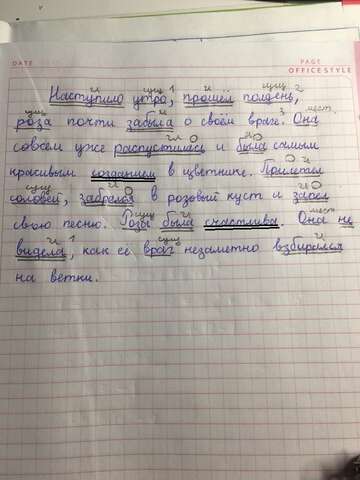 DATE
PAGE
OFFICE STYLE
гл сущ 1 гл сущ 2
Наступило утро, прошёл полдень,
сущ гл 3 мест
роза почти забыла о своём враге. Она
гл
совсем уже распустилась и была самым
красивым созданием в цветнике. Прилетел
сущ
соловей, забрался в розовый куст и запел
сущ гл мест
свою песню. Роза была счастлива. Она не
гл 1 сущ гл
видела, как её враг незаметно взбирался
на ветки.